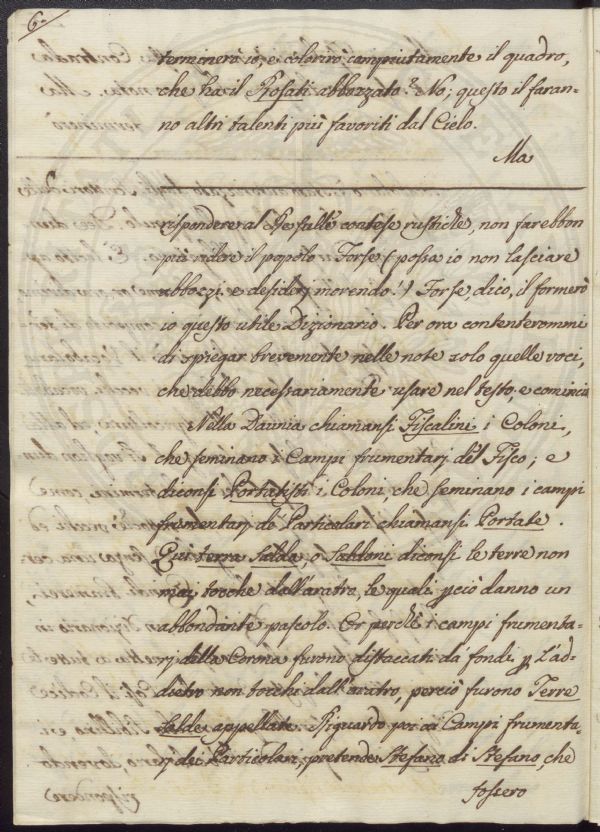 6.
terminerò io, e colorirò compiutamente il quadro,
che ha il Rosati abbozzato? No; questo il faran=
no altri talenti più favoriti dal Cielo.
Ma
rispondere al Pre falle contese rustiche, non farebbon
più ridere il popolo. Forse (possa io non lasciare
abbozzi, e desiderj morendo!) Forse, dico, il formerò
io questo utile Dizionario. Per ora contenterommi
di spiegar brevemente nelle note solo quelle voci,
che debbo necessariamente usare nel testo, e comincio
Nella Daunia chiamansi Fiscalini i Coloni,
che seminano i Campi frumentarj del Fisco; e
diconsi Portatisti i Coloni, che seminano i campi
frumentarj de' Particolari chiamansi Portate.
Qui terra Salda, o Saldoni diconsi le terre non
mai tocche dall'aratro, le quali pciò danno un
abbondante pascolo. Or perchè i campi frumenta=
rj della Corona furono distaccati da' fondi p l'ad=
dietro non tocchi dall'aratro, perciò furono Terre
salde appellate. Riguardo poi ai Campi frumenta=
rj dei Particolari, pretende Stefano di Stefano, che
fossero
rispondere